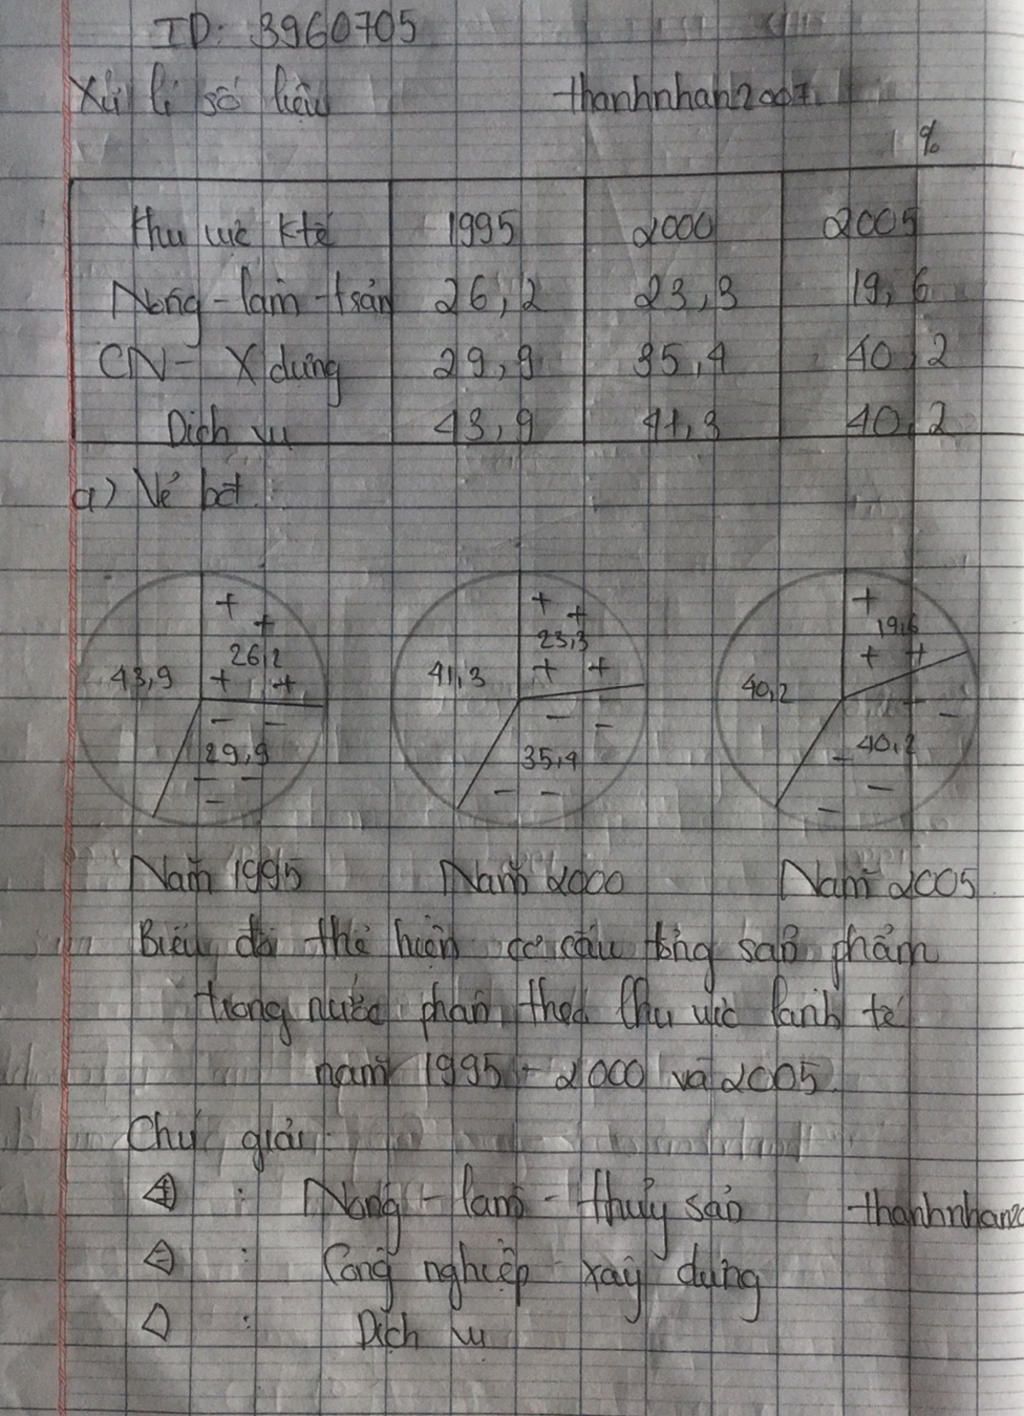 ID: 3960705
Xử lí số liệu thanhnhan2007
%
Khu vực ktế 1995 2000 2005
Nông - lâm - tsản 26,2 23,3 19,6
CN - Xdựng 29,9 35,4 40,2
Dịch vụ 43,9 41,3 40,2
a) Vẽ bđ:
26,2 23,3 19,6
43,9 41,3 40,2
29,9 35,4 40,2
Năm 1995 Năm 2000 Năm 2005
Biểu đồ thể hiện cơ cấu tổng sản phẩm
trong nước phân theo khu vực kinh tế
năm 1995 - 2000 và 2005.
Chú giải:
: Nông - lâm - thuỷ sản thanhnhan20
: Công nghiệp xây dựng
: Dịch vụ